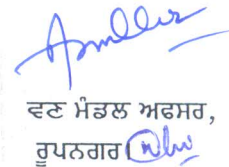 ਵਣ ਮੰਡਲ ਅਫਸਰ,
ਰੂਪਨਗਰ।